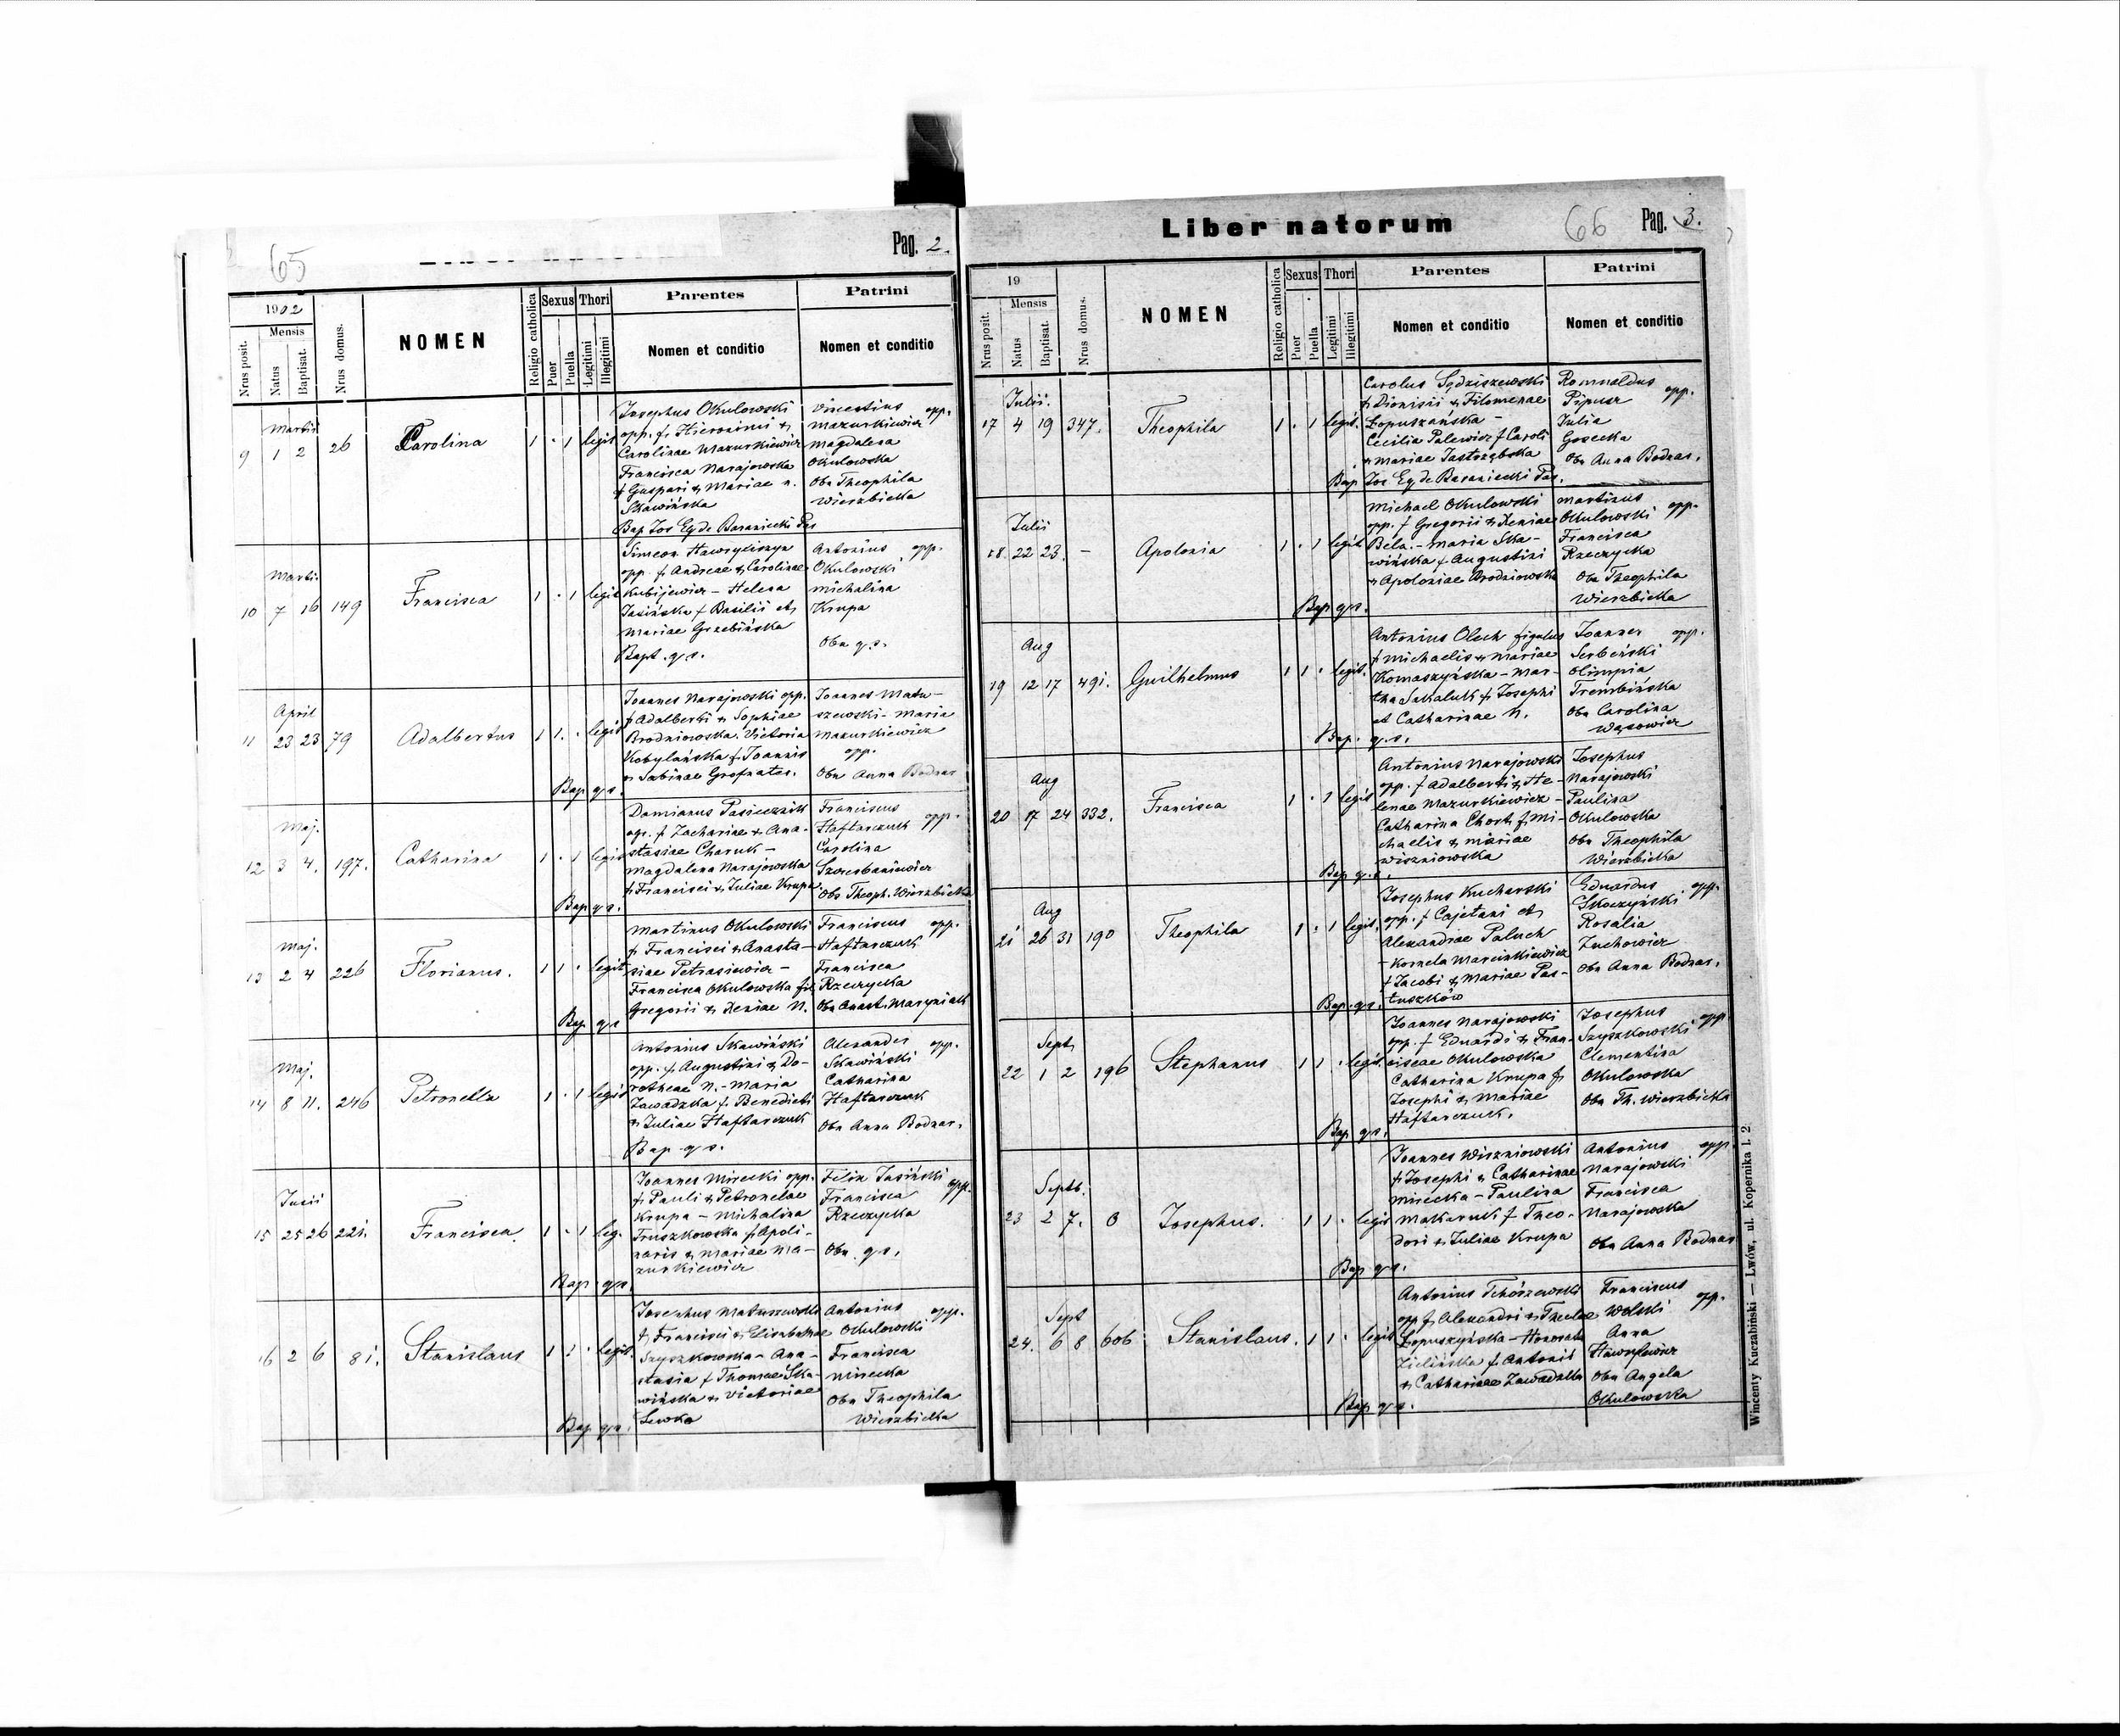 65
Pag. 2.
1902
Mensis
Nrus posit.
Natus
Baptisat.
Nrus domus.
NOMEN
Religio catholica
Sexus
Puer
Puella
Thori
Legitimi
Illegitimi
Parentes
Nomen et conditio
Patrini
Nomen et conditio
Martii
9 1 2 26 Carolina 1 · 1 legit
Josephus Okulowski
opp. f. Hieronimi &
Carolinae Mazurkiewicz
Francisca Narajowska
f Gaspari & Mariae n.
Skawińska
Bap Jos Eg de Baraniecki Par
Vincentius opp.
Mazurkiewicz
Magdalena
Okulowska
Obn Theophila
Wierzbicka
Martii
10 7 16 149 Francisca 1 · 1 legit
Simeon Hawryliszyn
opp. f. Andreae & Carolinae
Kubijewicz - Helena
Jasińska f Basilii et
Mariae Grzebińska
Bapt. q. s.
Antonius opp.
Okulowski
Michalina
Krupa
Obn q. s.
April
11 23 23 79 Adalbertus 1 1 · legit
Joannes Narajowski opp.
f Adalberti & Sophiae
Brodniowska. Victoria
Kobylańska f. Joannis
& Sabinae
Bap q s.
Joannes Matu-
szewski - Maria
Mazurkiewicz
opp.
Obn Anna Bodnar
Maj.
12 3 4. 197. Catharina 1 · 1 legit
Damianus Pasiecznik
opp. f Zachariae & Ana-
stasiae Charuk -
Magdalena Narajowska
f. Francisci & Juliae Krupa
Bap q s.
Franciscus
Haftarczuk opp.
Carolina
Obs Theoph. Wierzbicka
Maj.
13 2 4 226 Florianus. 1 1 · legit
Martinus Okulowski
f Francisci & Anasta-
siae Petrasiewicz -
Francisca Okulowska fil
Gregorii & Xeniae N.
Bap q s
Franciscus opp.
Haftarczuk
Francisca
Rzeczycka
Obn Anast. Maryniak
Maj.
14 8 11. 246 Petronella 1 · 1 legit
Antonius Skawiński
opp. f. Augustini & Do-
rotheae N. - Maria
Zawadzka f. Benedicti
& Juliae Haftarczuk
Bap q s.
Alexander opp.
Skawiński
Catharina
Haftarczuk
Obn Anna Bodnar.
Junii
15 25 26 221. Francisca. 1 · 1 leg.
Joannes Mirecki opp.
f. Pauli & Petronelae
Krupa - Michalina
Truszkowska f Apoli-
naris & Mariae Ma-
zurkiewicz
Bap q s.
Felix Jasiński
Francisca opp.
Rzeczycka
Obn. q. s.
16 2 6 81. Stanislaus 1 1 · legit.
Josephus Matuszewski
f. Francisci & Elisabethae
Szyszkowska - Ana-
stasia f Thomae Ska-
wińska & Victoriae
Lewko
Bap q s.
Antonius opp.
Okulowski
Francisca
Mirecka
Obn Theophila
Wierzbicka
Liber natorum
66
Pag. 3.
19
Mensis
Nrus posit.
Natus
Baptisat.
Nrus domus.
NOMEN
Religio catholica
Sexus
Puer
Puella
Thori
Legitimi
Illegitimi
Parentes
Nomen et conditio
Patrini
Nomen et conditio
Julii.
17 4 19 347. Theophila 1 · 1 legit.
Carolus Sędziszewski
f Dionisii & Filomenae
Łopuszańska -
Cecilia Palewicz f Caroli
& Mariae Jastrząbska
Bap Jos Eg de Baraniecki Par.
Romualdus
Pipusz opp.
Julia
Gosecka
Obn Anna Bodnar.
Julii
18. 22 23. - Apolonia 1 · 1 legit
Michael Okulowski
opp. f Gregorii & Xeniae
Bela. - Maria Ska-
wińska f Augustini
& Apoloniae Brodniowska
Bap q s.
Martinus
Okulowski opp.
Francisca
Rzeczycka
Obn Theophila
Wierzbicka
Aug
19 12 17 491. Guilhelmus 1 1 · legit.
Antonius Olech figulus
f Michaelis & Mariae
Komaszyńska - Mar-
tha Sakaluk f Josephi
et Catharinae N.
Bap. q. s.
Joannes opp.
Serbeński
Olimpia
Trembińska
Obn Carolina
Wąsowicz
Aug
20 17 24 332. Francisca 1 · 1 legit
Antonius Narajowski
opp. f Adalberti & He-
lenae Mazurkiewicz -
Catharina Chort f. Mi-
chaelis & Mariae
Wiszniowska
Bap q. s.
Josephus
Narajowski
Paulina
Okulowska
Obn Theophila
Wierzbicka
Aug
21 26 31 190 Theophila 1 · 1 legit.
Josephus Kucharski
opp. f Cajetani et
Alexandrae Paluch
- Kornela Marcinkiewicz
f Jacobi & Mariae Pas-
tuszków
Bap. q s.
Eduardus
Skoczyński opp.
Rosalia
Zuchowicz
Obn Anna Bodnar.
Sept
22 1 2 196 Stephanus 1 1 · legit.
Joannes Narajowski
opp. f Eduardi & Fran-
ciscae Okulowska
Catharina Krupa f.
Josephi & Mariae
Haftarczuk.
Bap q s.
Josephus
Szyszkowski opp
Clementina
Okulowska
Obn Th. Wierzbicka
Septb.
23 2 7. 0 Josephus. 1 1 · legit
Joannes Wiszniowski
f Josephi & Catharinae
Mirecka - Paulina
Makaruk f Theo-
dori & Juliae Krupa
Bap q s.
Antonius opp
Narajowski
Francisca
Narajowska
Obn Anna Bodnar
Sept
24. 6 8 606 Stanislaus. 1 1 · legit
Antonius Tchórzewski
opp f. Alexandri & Theclae
Łopuszyńska - Honorata
Zielińska f. Antonii
& Catharinae Zawadzka
Bap q s.
Franciscus
Wolski opp.
Anna
Obn Angela
Okulowska
Wincenty Kuczabiński — Lwów, ul. Kopernika l. 2